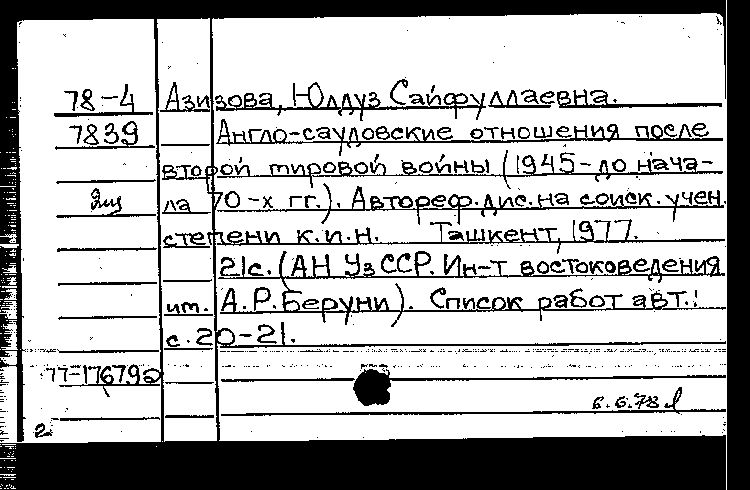 78-4 Азизова, Юлдуз Сайфуллаевна.
7839 Англо-саудовские отношения после
второй мировой войны (1945-до нача-
2щ ла 70-х гг.). Автореф.дис.на соиск.учен.
степени к.и.н. Ташкент, 1977.
21с. (АН УзССР. Ин-т востоковедения
им. А.Р.Беруни). Список работ авт.:
с.20-21.
77-17679а
6.6.78
2